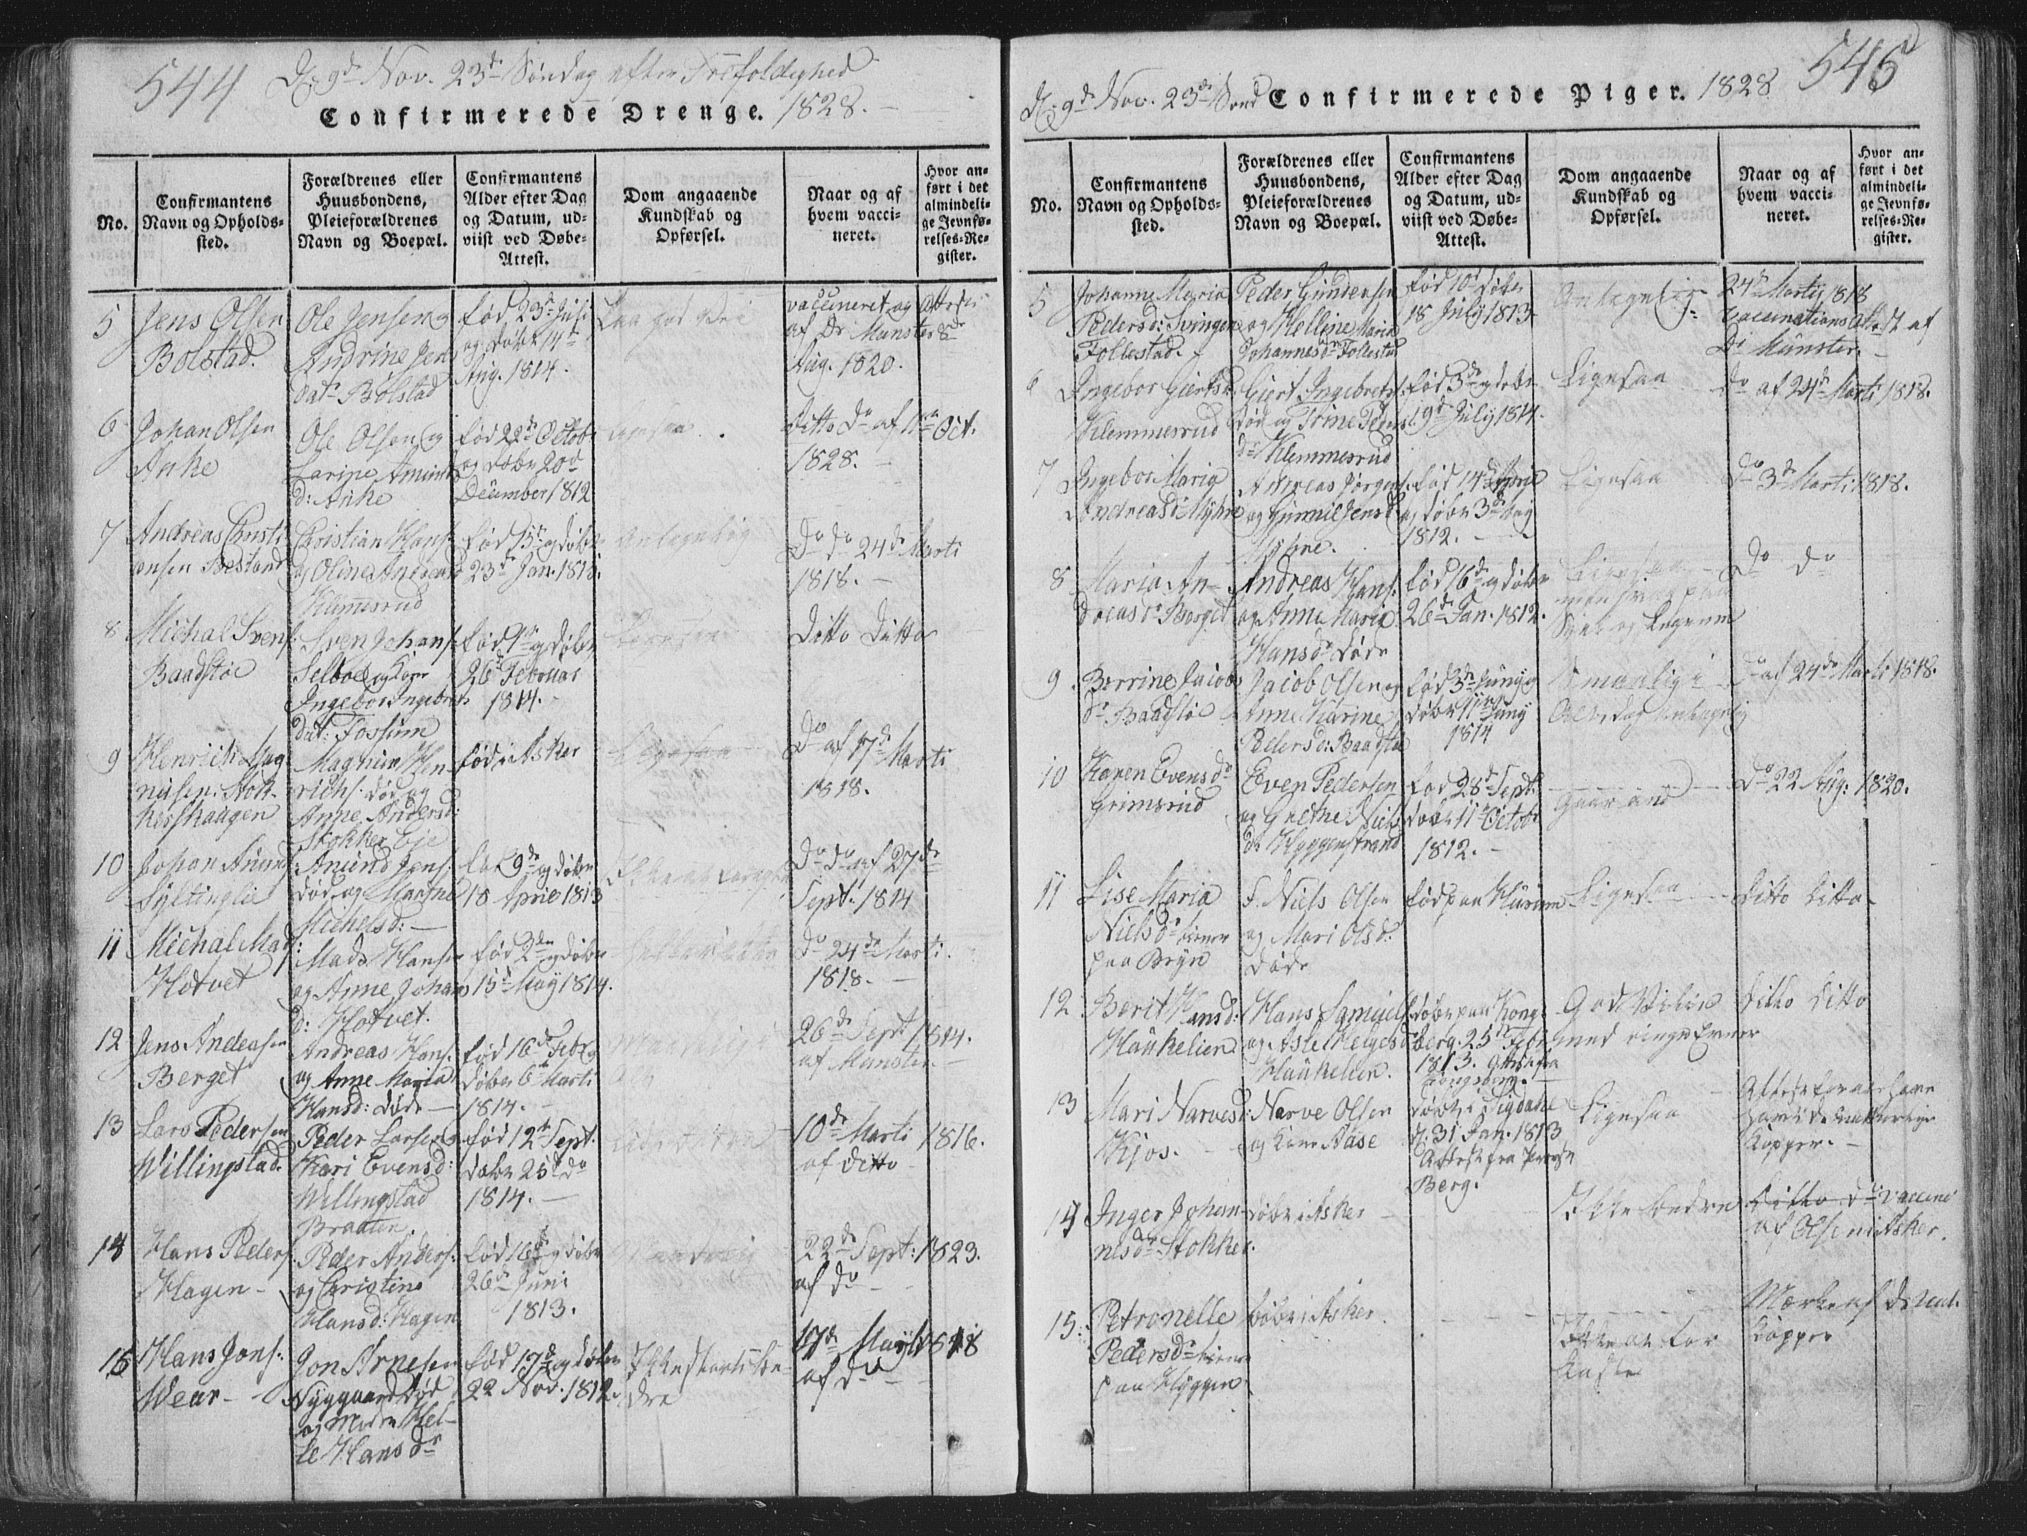 544
D: 9d Nov. 23de Søndag efter Trefoldighed
Confirmerede Drenge. 1828.
No.
Confirmantens
Navn og Opholds-
sted.
Forældrenes eller
Huusbondens,
Pleieforældrenes
Navn og Boepæl.
Confirmantens
Alder efter Dag
og Datum, ud-
viist ved Døbe-
Attest.
Dom angaaende
Kundskab og
Opførsel.
Naar og af
hvem vacci-
neret.
Hvor an-
ført i det
almindeli-
ge Jevnfø-
relses-Re-
gister.
5
Jens Olsen
Bolstad.
Ole Jensen og
Andrine Jens
datr Bolstad
fød 23de Juli
og døbt 14de
Aug. 1814.
vaccineret og Attest
af Dr Munster 8de
Aug. 1820.
6
Johan Olsen
Anke
Ole Olsen og
Larine Amunds
d: Anke
fød 22de Octob
og døbt 20d
December 1812
Ligesaa
Ditto Do af 11te Oct.
1828.
7
Andreas Christi
ensen Bostand
Christian Hans:
og Oline Andreasd
Klemmesrud
fød 15de og døbt
23de Jan. 1813.
Antagelig
Do do 24de Marti
1818.
8
Michal Svens:
Baadstøe
Sven Johans:
Selboe og Kone
Ingebor Ingebrets
dat: Fossum
fød 9de og døbt
26de Februar
1814.
Ligesaa
Ditto Ditto
9
Henrich Mag
nusen Stok-
keshaagen
Magnus Hen
richs: død og
Anne Andersd:
Stokker Eje
fød i Asker
Ligesaa
Do af 17de Marti
1818.
10
Johan Amunds
Syltinglie
Amund Jens:
død og Marthe
Michelsd:
fød 9de og døbt
18 April 1813
Do do af 27de
Sept: 1814
11
Michal Mads:
Hotvet
Mads Hansen
og Anne Johans
d: Hotvet.
fød 2den og døbt
15de May 1814.
do 24de Marti
1818.
12
Jens Andreasen
Berget
Andreas Hans:
og Anne Maria
Hansd: døde
fød 16de Feb: og
døbt 6te Marti
1814.
26de Sept 1814.
af Munster.
13
Lars Pedersen
Willingstad.
Peder Larsen og
Kari Evensd:
Willingstad
Braaten.
fød 12te Sept.
døbt 25de do
1814.
10de Marti 1816.
af ditto
14
Hans Peders:
Hagen
Peder Anders:
og Christine
Hansd: Hagen
fød 16de og døbt
26de Juni
1813.
Maadelig
22de Sept: 1823.
af do
15
Hans Jons:
Wear
Jon Arnesen
Nyggaard død
og Moder Hel-
le Hansdr
fød 17de og døbt
22 Nov. 1812.
17de May 1818
af do
545
D: 9d Nov. 23de Sønd Confirmerede Piger. 1828
No.
Confirmantens
Navn og Opholds-
sted.
Forældrenes eller
Huusbondens,
Pleieforældrenes
Navn og Boepæl.
Confirmantens
Alder efter Dag
og Datum, ud-
viist ved Døbe-
Attest.
Dom angaaende
Kundskab og
Opførsel.
Naar og af
hvem vacci-
neret.
Hvor an-
ført i det
almindeli-
ge Jevnfø-
relses-Re-
gister.
5
Johanne Maria
Pedersd: Svingen
Follestad.
Peder Gundersen
og Helline Maria
Johannesdr Follestad
fød 10de døbt
18 July 1813
Antagelig
24de Martii 1818
Vaccinations Attest af
Dr Münster.
6
Ingebor Giertsd
Klemmesrud
Giert Ingebrets:
død og Trine Jens
dr Klemmesrud
fød 3de og døbt
9de July 1814.
Ligesaa
Do af 24de Marti 1818.
7
Ingebor Maria
Andreasdr Myhre
Andreas Jørgens:
og Gunnil Jensd:
Myhre.
fød 14de April
og døbt 3de May
1812.
Ligesaa
Do 3de Marti 1818.
8
Maria An-
dreasdr Berget
Andreas Hans:
og Anne Maria
Hansdr døde
fød 16de og døbt
26de Jan. 1812.
Ligesaa
Do do
9
Berrine Jacobs
dr Baadstøe
Jacob Olsen og
Anne Karine
Pedersd: Baadstø
fød 3de Juny og
døbt 11te Juny
1814
Do af 24de Marti 1818.
10
Karen Evensdr
Grimsrud
Even Pedersen
og Grethe Niels
dr Hyggenstrand
fød 28de Sept:
døbt 11te Octob
1812.
Gaar an
Do 22 Aug: 1820.
11
Lise Maria
Nielsdr tiener
paa Bryn
F. Niels Olsen
og Mari Olsd:
døde
fød paa Hurum
Ligesaa
Ditto Ditto
12
Berit Hansd:
Haukelien
Hans Samuels:
og Aslet Helgesd
Haukelien.
døbt paa Kong-
berg 25de Febr
1813. Attest fra
Kongsberg.
God Villie
med ringe Evner
Ditto Ditto
13
Mari Narvesd:
Kjos.
Narve Olsen
og Kone Aase
døbt i Sigdahl
d: 31 Jan. 1813
Attest fra Præst
Berg.
Ligesaa
Attest for at have
havt de naturlige
Kopper.
14
Inger Johan-
nesdr Stokker.
døbt i Asker
Ikke bedre
Ditto do Vaccine
af Olsen i Asker.
15.
Petronelle
Pedersdr tiener
paa Hyggen
døbt i Asker.
Mærke af de nat.
Kopper